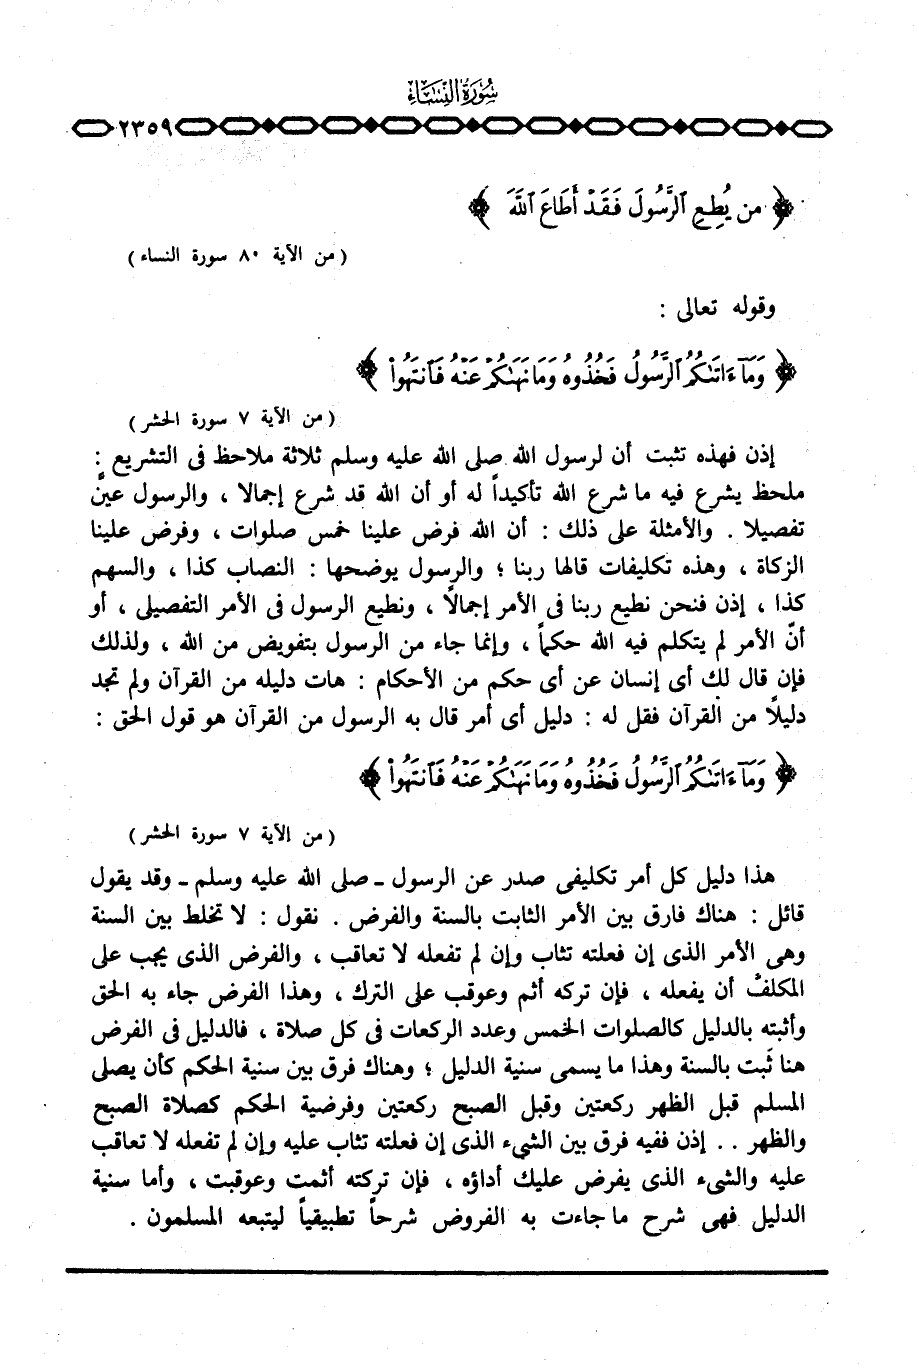 سُورَةُ النِّسَاءِ
٢٣٥٩
﴿ مَّن يُطِعِ ٱلرَّسُولَ فَقَدْ أَطَاعَ ٱللَّهَ ﴾
( من الآية ٨٠ سورة النساء )
وقوله تعالى :
﴿ وَمَآ ءَاتَىٰكُمُ ٱلرَّسُولُ فَخُذُوهُ وَمَا نَهَىٰكُمْ عَنْهُ فَٱنتَهُوا۟ ﴾
( من الآية ٧ سورة الحشر )
إذن فهذه تثبت أن لرسول الله صلى الله عليه وسلم ثلاثة ملاحظ فى التشريع :
ملحظ يشرع فيه ما شرع الله تأكيداً له أو أن الله قد شرع إجمالا ، والرسول عين
تفصيلا . والأمثلة على ذلك : أن الله فرض علينا خمس صلوات ، وفرض علينا
الزكاة ، وهذه تكليفات قالها ربنا ؛ والرسول يوضحها : النصاب كذا ، والسهم
كذا ، إذن فنحن نطيع ربنا فى الأمر إجمالاً ، ونطيع الرسول فى الأمر التفصيلى ، أو
أنّ الأمر لم يتكلم فيه الله حكماً ، وإنما جاء من الرسول بتفويض من الله ، ولذلك
فإن قال لك أى إنسان عن أى حكم من الأحكام : هات دليله من القرآن ولم تجد
دليلاً من القرآن فقل له : دليل أى أمر قال به الرسول من القرآن هو قول الحق :
﴿ وَمَآ ءَاتَىٰكُمُ ٱلرَّسُولُ فَخُذُوهُ وَمَا نَهَىٰكُمْ عَنْهُ فَٱنتَهُوا۟ ﴾
( من الآية ٧ سورة الحشر )
هذا دليل كل أمر تكليفى صدر عن الرسول ـ صلى الله عليه وسلم ـ وقد يقول
قائل : هناك فارق بين الأمر الثابت بالسنة والفرض . نقول : لا تخلط بين السنة
وهى الأمر الذى إن فعلته تثاب وإن لم تفعله لا تعاقب ، والفرض الذى يجب على
المكلف أن يفعله ، فإن تركه أثم وعوقب على الترك ، وهذا الفرض جاء به الحق
وأثبته بالدليل كالصلوات الخمس وعدد الركعات فى كل صلاة ، فالدليل فى الفرض
هنا ثَبت بالسنة وهذا ما يسمى سنية الدليل ؛ وهناك فرق بين سنية الحكم كأن يصلى
المسلم قبل الظهر ركعتين وقبل الصبح ركعتين وفرضية الحكم كصلاة الصبح
والظهر . . إذن ففيه فرق بين الشىء الذى إن فعلته تثاب عليه وإن لم تفعله لا تعاقب
عليه والشىء الذى يفرض عليك أداؤه ، فإن تركته أثمت وعوقبت ، وأما سنية
الدليل فهى شرح ما جاءت به الفروض شرحاً تطبيقياً ليتبعه المسلمون .